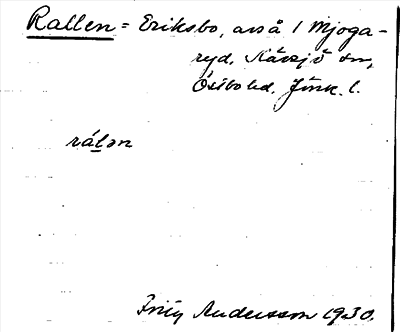 Rallen = Eriksbo, avs å 1 Mjoga-
ryd, Kävsjö sn,
Östbo hd, Jönk. l.
rálən
Andersson 1930.